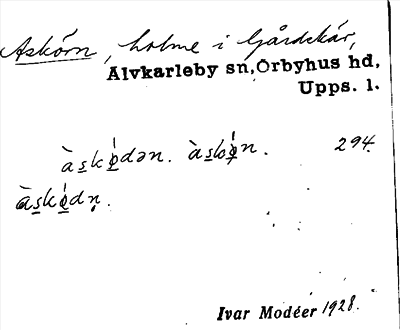 Askörn, holme i Gårdskär,
Älvkarleby sn, Örbyhus hd,
Upps. l.
àskǿdən. àskǿn. 294.
àskǿdn.
Ivar Modéer 1928.